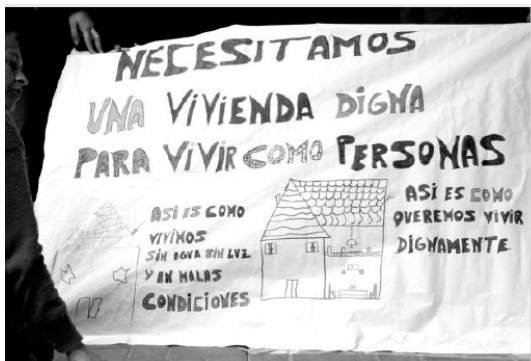 NECESITAMOS
UNA VIVIENDA DIGNA
PARA VIVIR COMO PERSONAS
ASI ES COMO
VIVIMOS
SIN AGUA SIN LUZ
Y EN MALAS
CONDICIONES
ASÍ ES COMO
QUEREMOS VIVIR
DIGNAMENTE